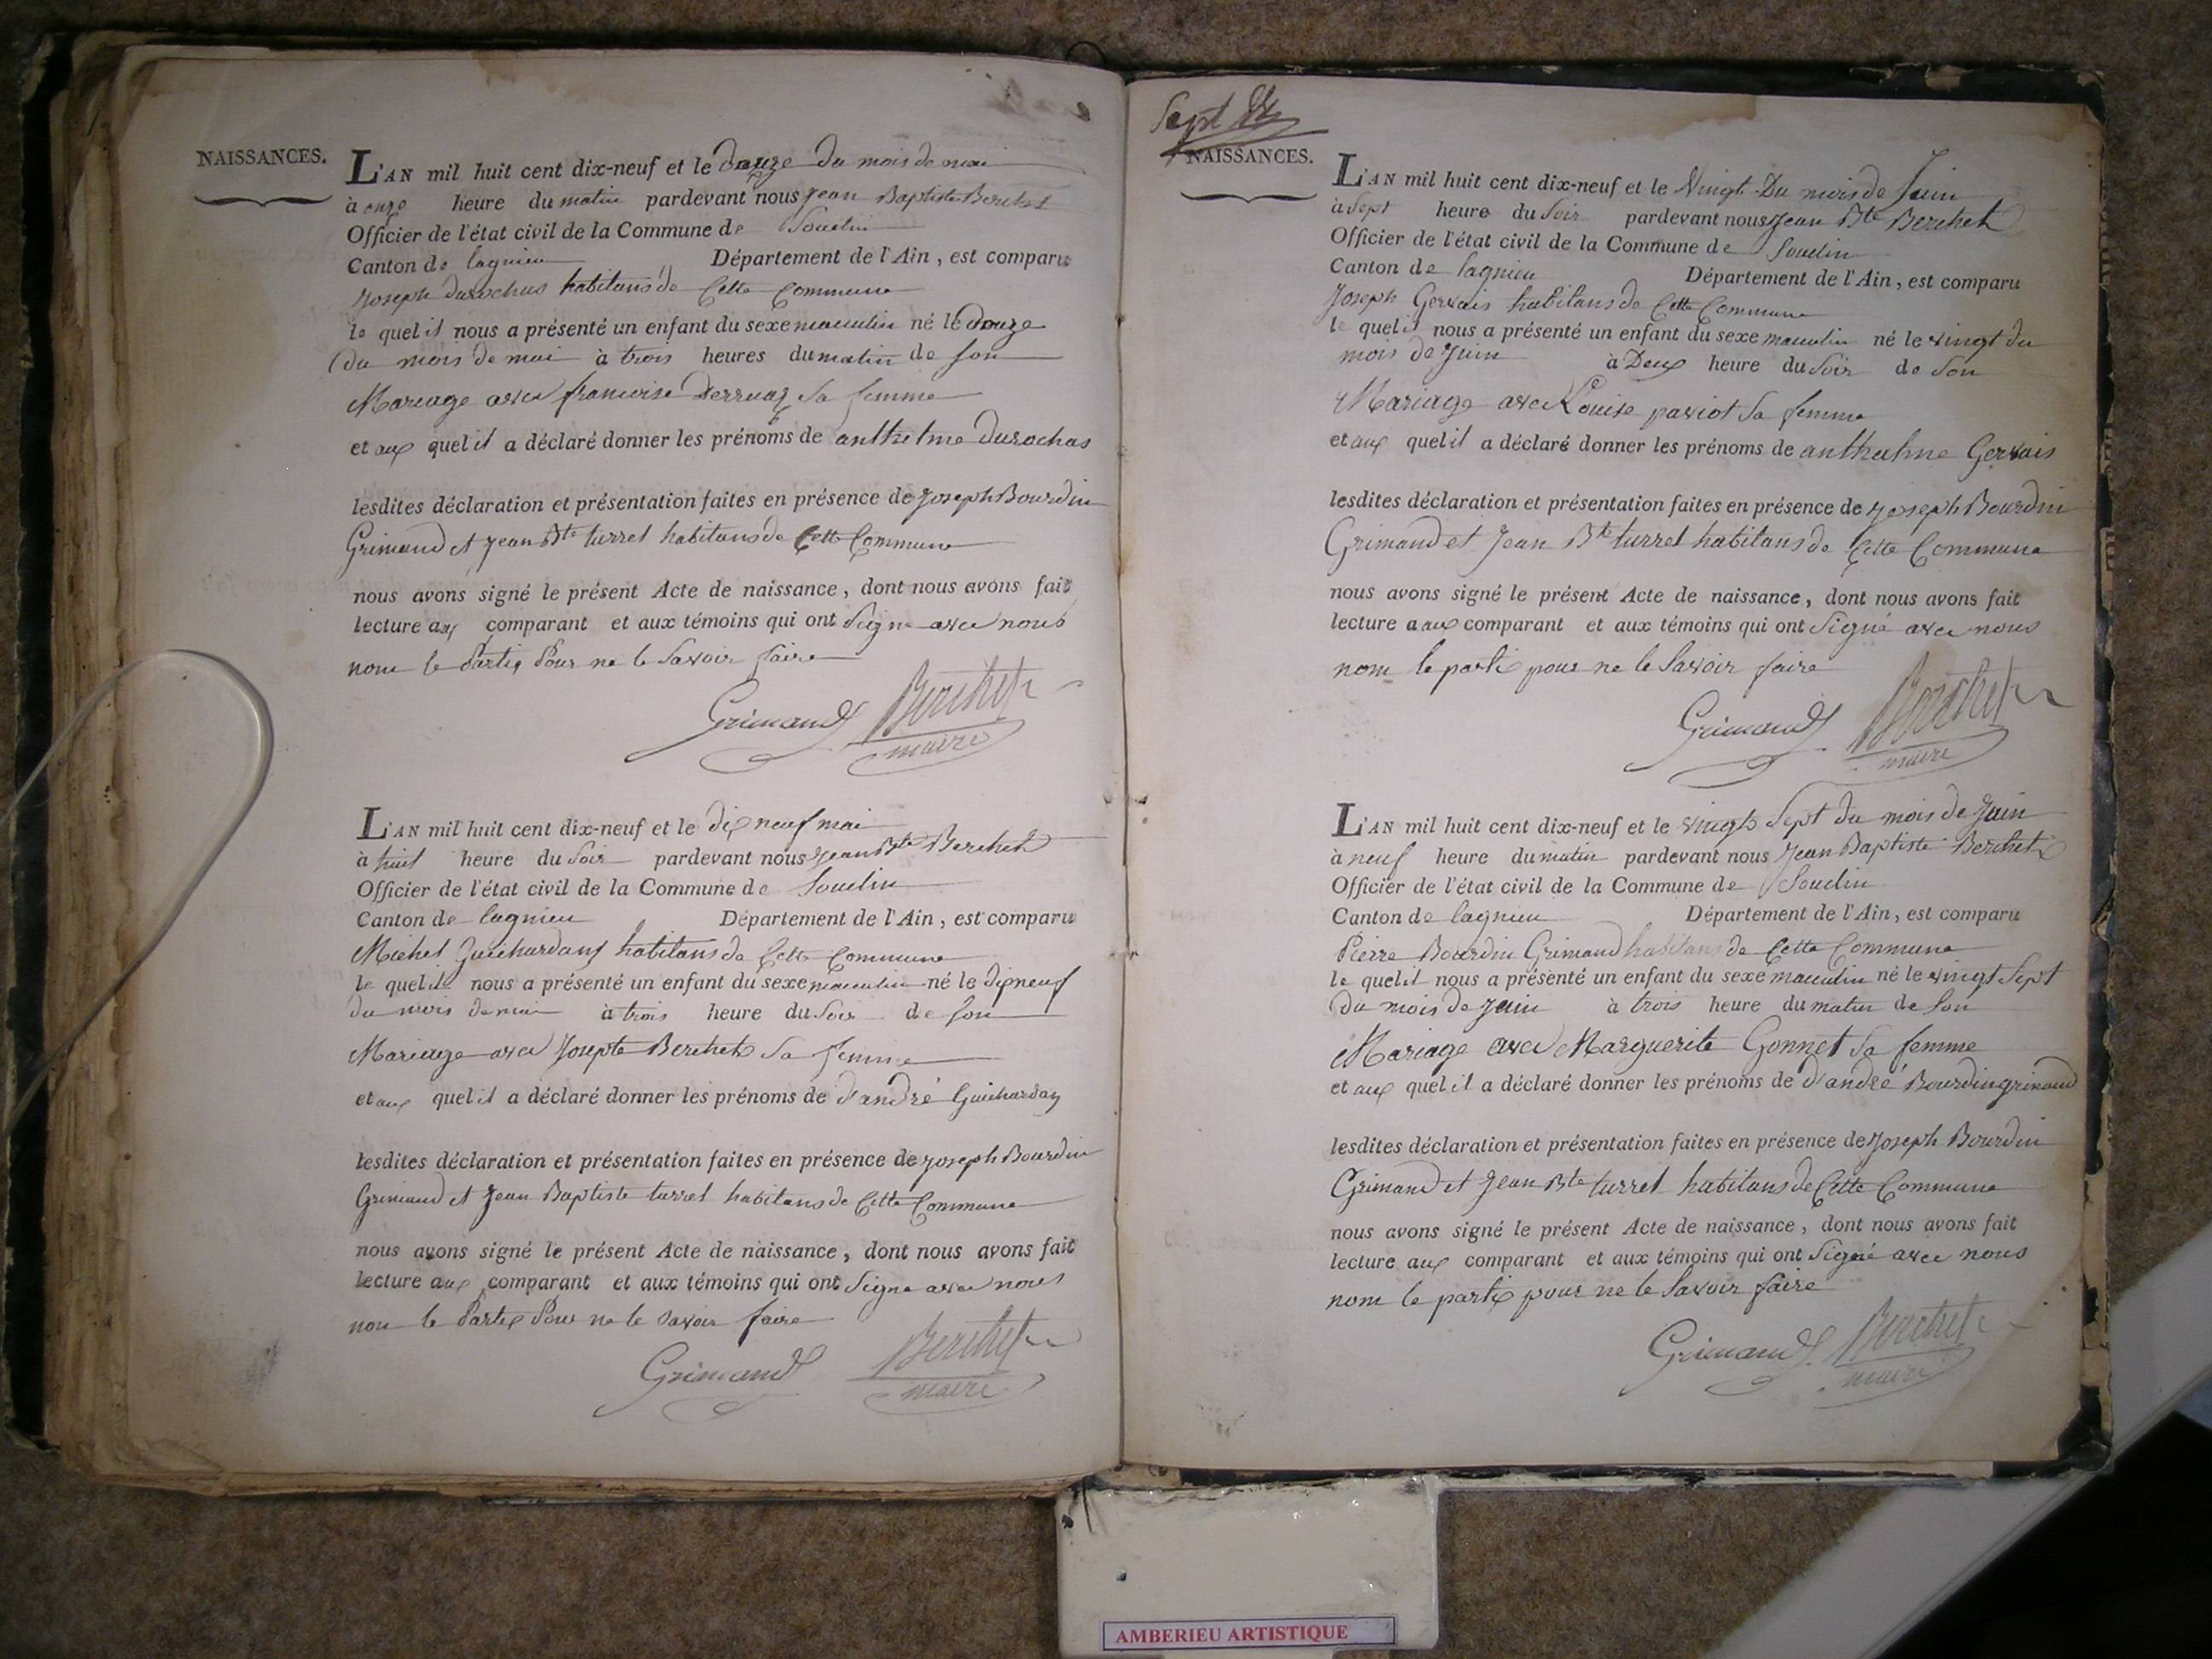 NAISSANCES.
L'AN mil huit cent dix-neuf et le douze du mois de mai
à onze heure du matin pardevant nous Jean Baptiste Berchet
Officier de l'état civil de la Commune de Souclin
Canton de lagnieu Département de l'Ain, est comparu
Joseph durochas habitans de Cette Commune
le quel il nous a présenté un enfant du sexe masculin né le douze
du mois de mai à trois heures du matin de son
Mariage avec francoise Derruaz sa femme
et aux quel il a déclaré donner les prénoms de anthelme durochas
lesdites déclaration et présentation faites en présence de Joseph Bourdin
Grimaud et Jean Bte turrel habitans de Cette Commune
nous avons signé le présent Acte de naissance, dont nous avons fait
lecture aux comparant et aux témoins qui ont signe avec nous
non le Partis Pour ne le Savoir faire
Grimaud Berchet
maire
L'AN mil huit cent dix-neuf et le dix neuf mai
à huit heure du Soir pardevant nous Jean Bte Berchet
Officier de l'état civil de la Commune de Souclin
Canton de lagnieu Département de l'Ain, est comparu
Michel Guichardans habitans de Cette Commune
le quel il nous a présenté un enfant du sexe masculin né le dix neuf
du mois de mai à trois heure du Soir de son
Mariage avec Josepte Berchet sa femme
et aux quel il a déclaré donner les prénoms de d'andré Guichardan
lesdites déclaration et présentation faites en présence de Joseph Bourdin
Grimaud et Jean Baptiste turrel habitans de Cette Commune
nous avons signé le présent Acte de naissance, dont nous avons fait
lecture aux comparant et aux témoins qui ont Signe avec nous
non le Partis Pour ne le Savoir faire
Grimaud Berchet
maire
Sept
NAISSANCES.
L'AN mil huit cent dix-neuf et le Vingt Du mois de Juin
à Sept heure du Soir pardevant nous Jean Bte Berchet
Officier de l'état civil de la Commune de Souclin
Canton de lagnieu Département de l'Ain, est comparu
Joseph Gervais habitans de Cette Commune
le quel il nous a présenté un enfant du sexe masculin né le vingt du
mois de Juin à Deux heure du Soir de Son
Mariage avec Louise paviot Sa femme
et aux quel il a déclaré donner les prénoms de anthelme Gervais
lesdites déclaration et présentation faites en présence de Joseph Bourdin
Grimaud et Jean Bte turrel habitans de Cette Commune
nous avons signé le présent Acte de naissance, dont nous avons fait
lecture a aux comparant et aux témoins qui ont Signé avec nous
non le parti pour ne le Savoir faire
Grimaud Berchet
maire
L'AN mil huit cent dix-neuf et le vingt Sept du mois de Juin
à neuf heure du matin pardevant nous Jean Baptiste Berchet
Officier de l'état civil de la Commune de Souclin
Canton de lagnieu Département de l'Ain, est comparu
Pierre Bourdin Grimaud habitans de Cette Commune
le quel il nous a présenté un enfant du sexe masculin né le vingt Sept
du mois de Juin à trois heure du matin de Son
Mariage avec Marguerite Gonnet Sa femme
et aux quel il a déclaré donner les prénoms de d'andré Bourdin grimaud
lesdites déclaration et présentation faites en présence de Joseph Bourdin
Grimaud et Jean Bte turrel habitans de Cette Commune
nous avons signé le présent Acte de naissance, dont nous avons fait
lecture aux comparant et aux témoins qui ont Signé avec nous
non le partis pour ne le Savoir faire
Grimaud Berchet
maire
AMBERIEU ARTISTIQUE